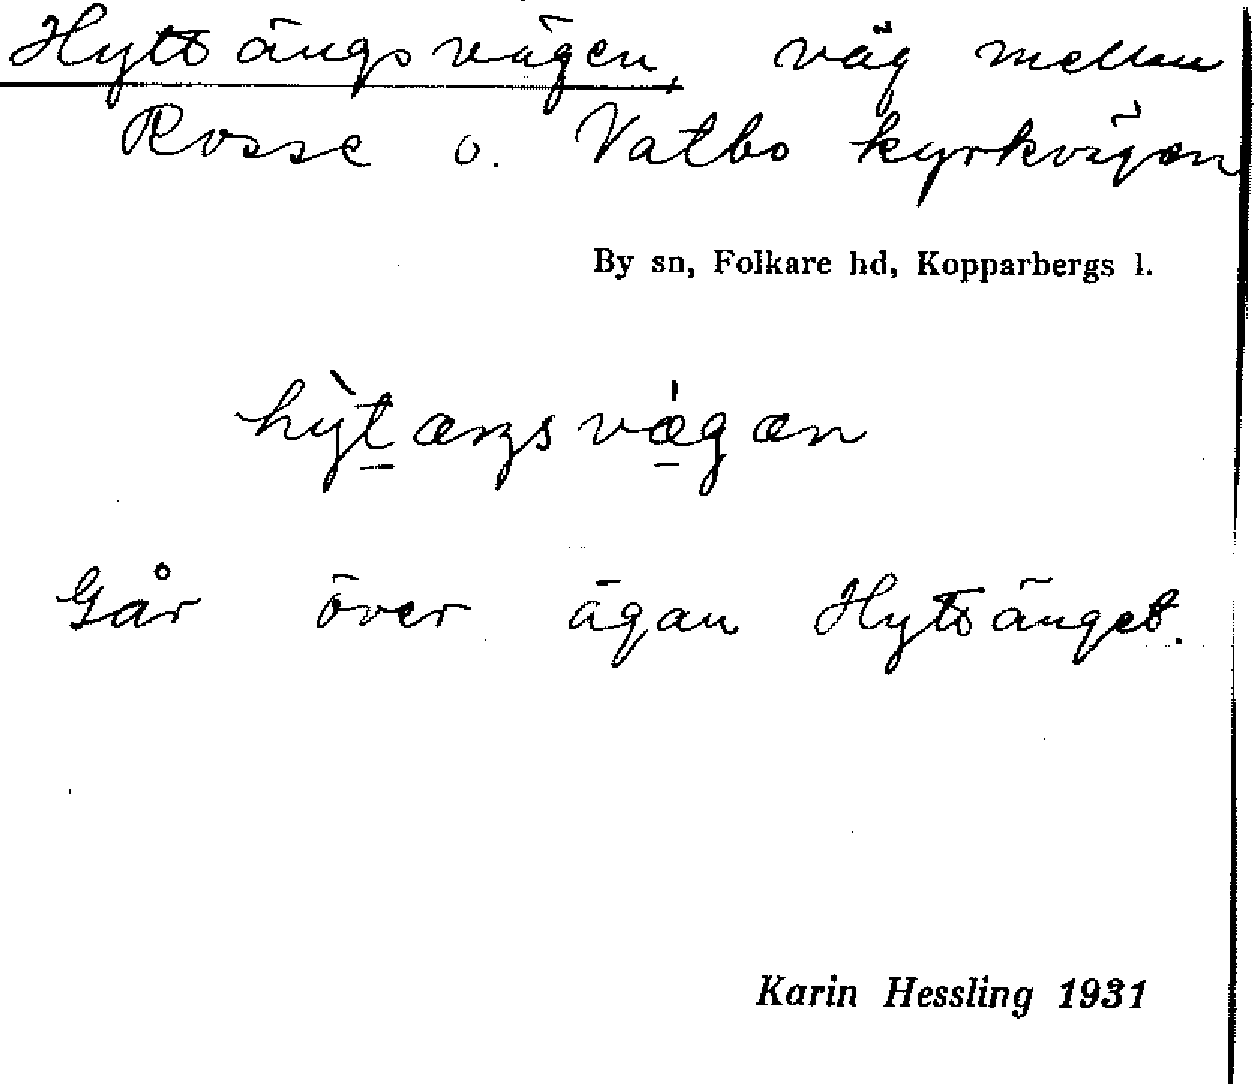 Hyttängsvägen, väg mellan
Rosse o. Vatbo kyrkvägen
By sn, Folkare hd, Kopparbergs l.
hỳt̠æŋsvæ̠̍gæn
Går över ägan Hyttänget.
Karin Hessling 1931